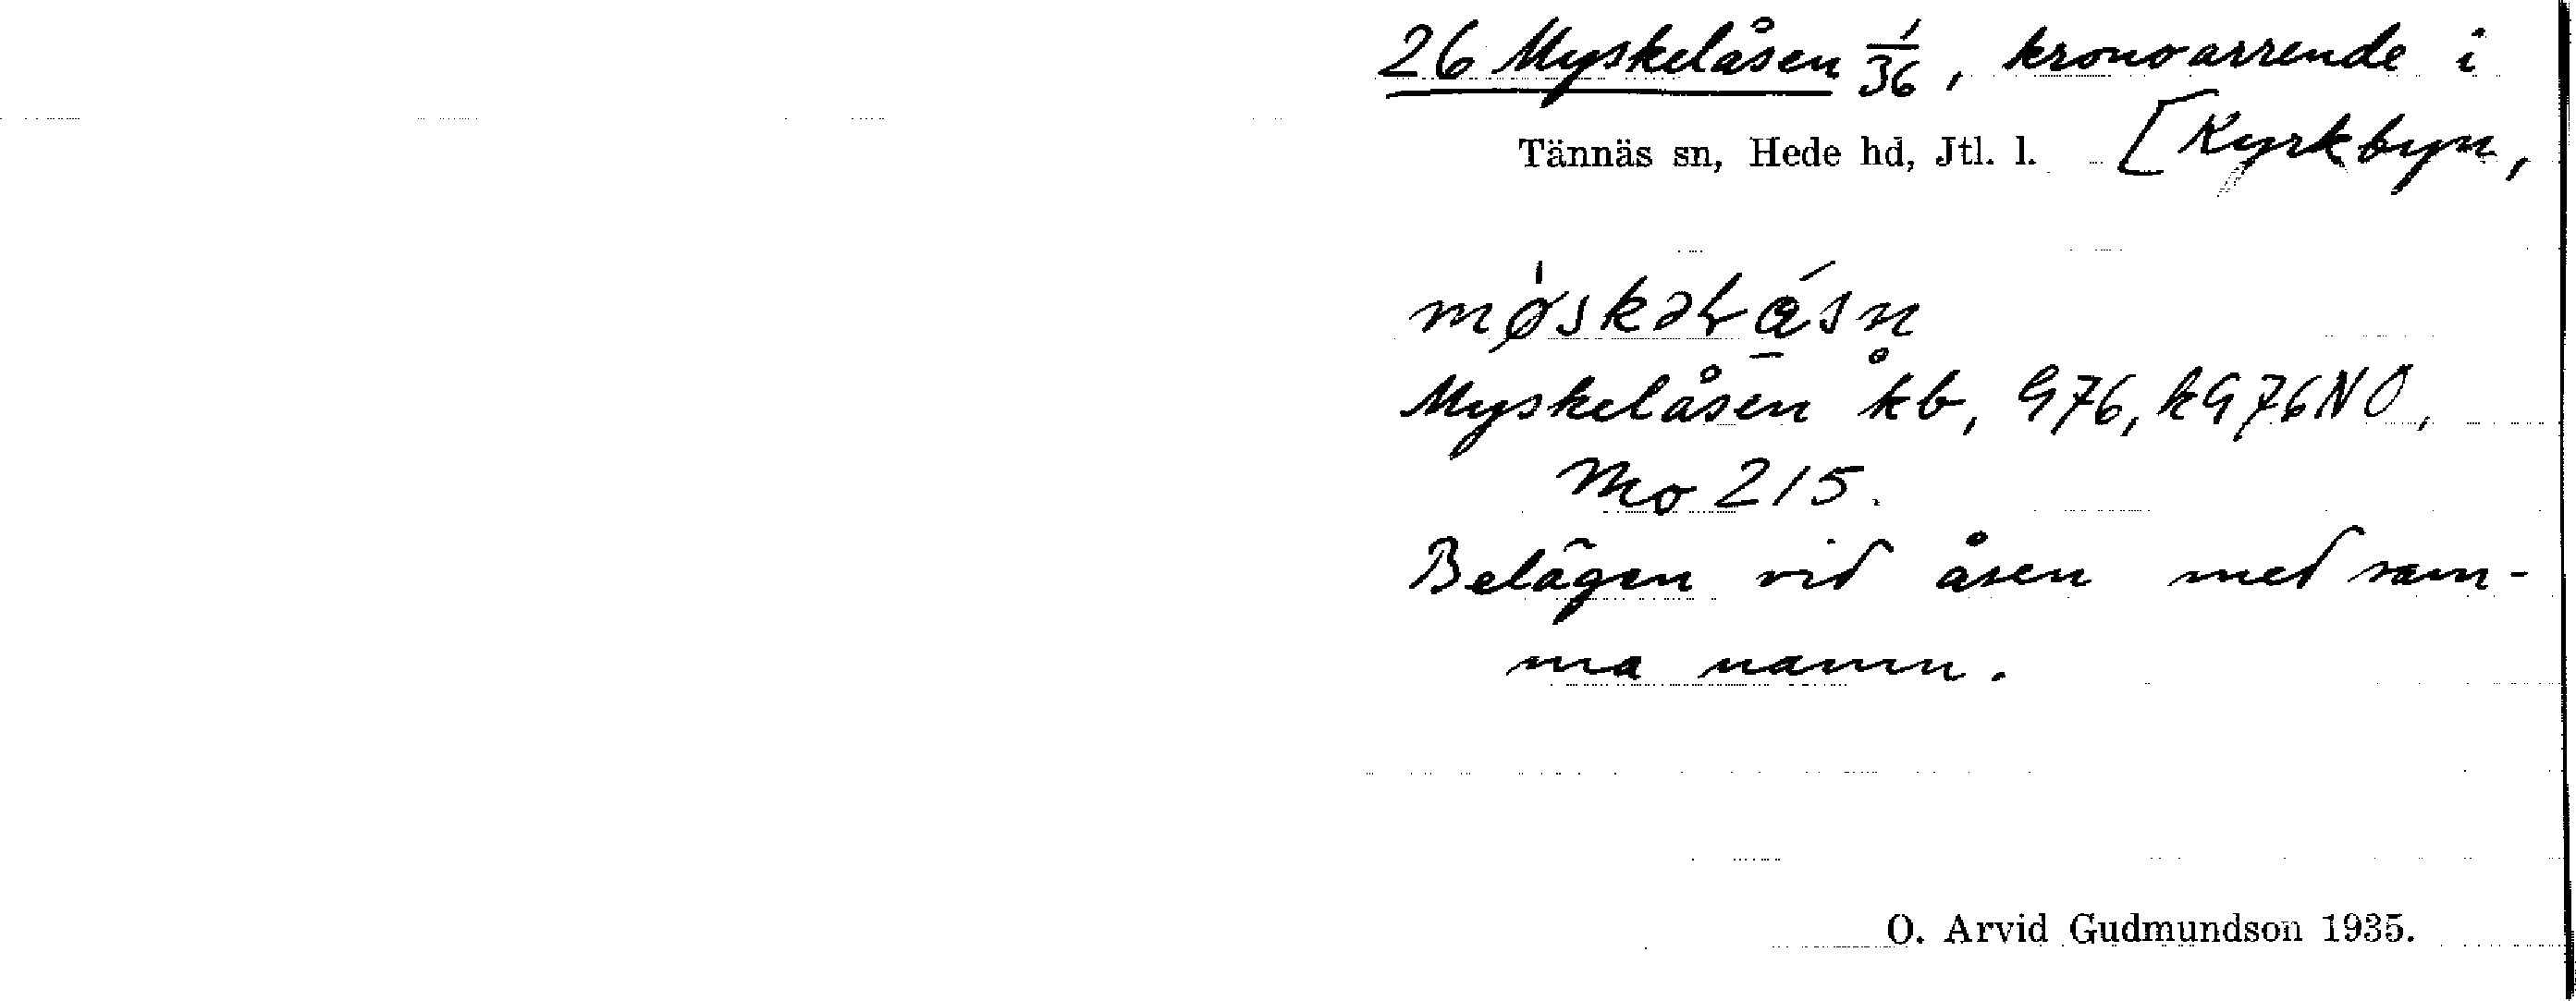 26 Myskelåsen 1/36, kronoarrende i
Tännäs sn, Hede hd, Jtl. l. [Kyrkbyn,
Myskelåsen kb, G76, kG76NO,
Mo 215.
Belägen vid åsen med sam-
ma namn.
O. Arvid Gudmundson 1935.